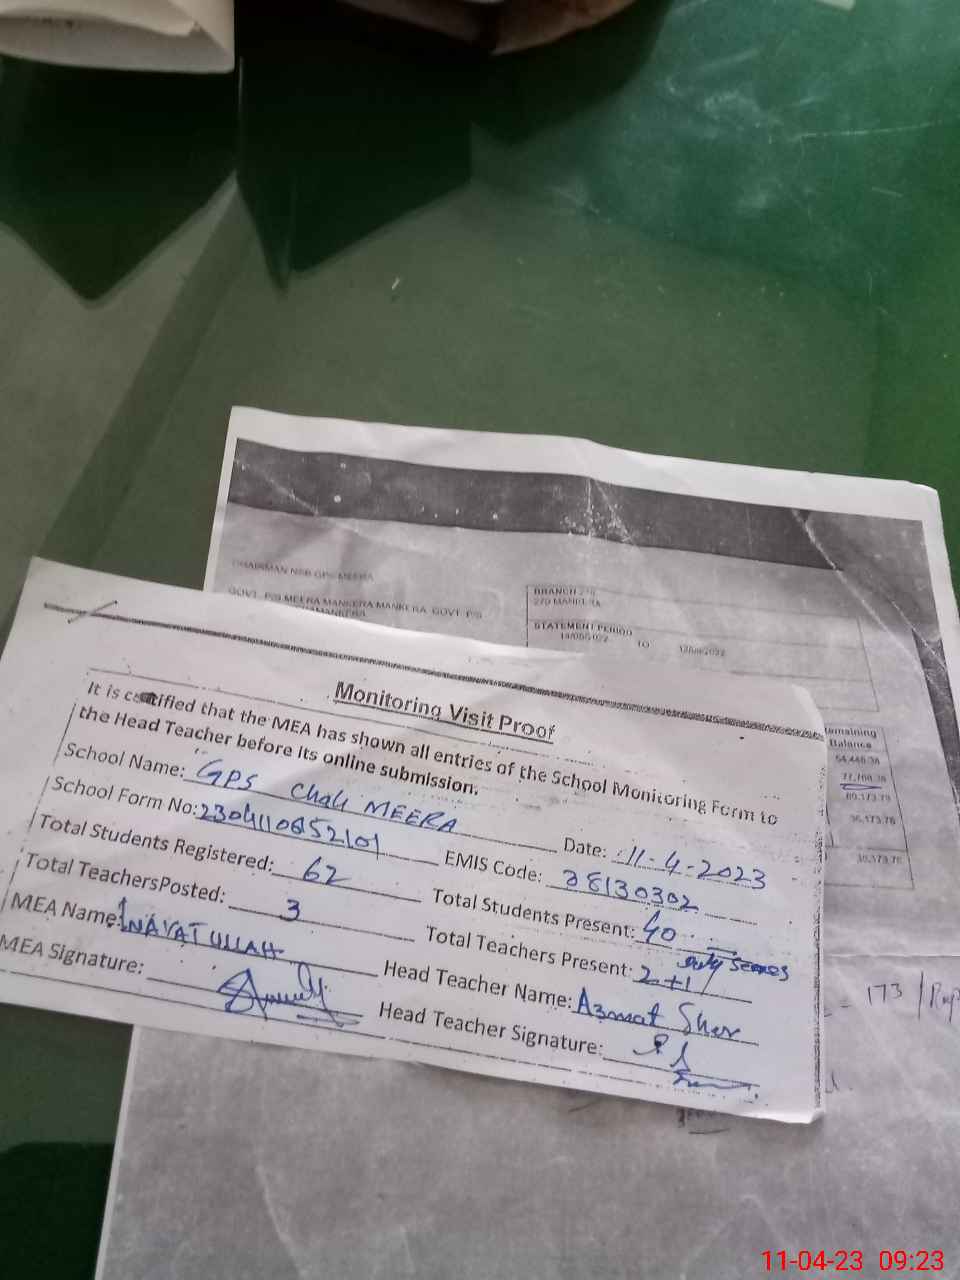 CHAIRMAN NSB GPS MEERA
GOVT. P/S MEERA MANKERA MANKERA GOVT. P/S
MANKERA
BRANCH
270 MANKERA
STATEMENT PERIOD
TO
Remaining
Balance
54,448.38
77,768.38
36,173.78
Monitoring Visit Proof
It is certified that the MEA has shown all entries of the School Monitoring Form to
the Head Teacher before its online submission.
School Name: GPS Chak MEERA Date: 11-4-2023
School Form No: 2304110852101 EMIS Code: 38130302
Total Students Registered: 62 Total Students Present: 40
Total TeachersPosted: 3 Total Teachers Present: 2+1
MEA Name: INAYATULLAH Head Teacher Name: Azmat Sher
MEA Signature: Head Teacher Signature:
173
11-04-23 09:23